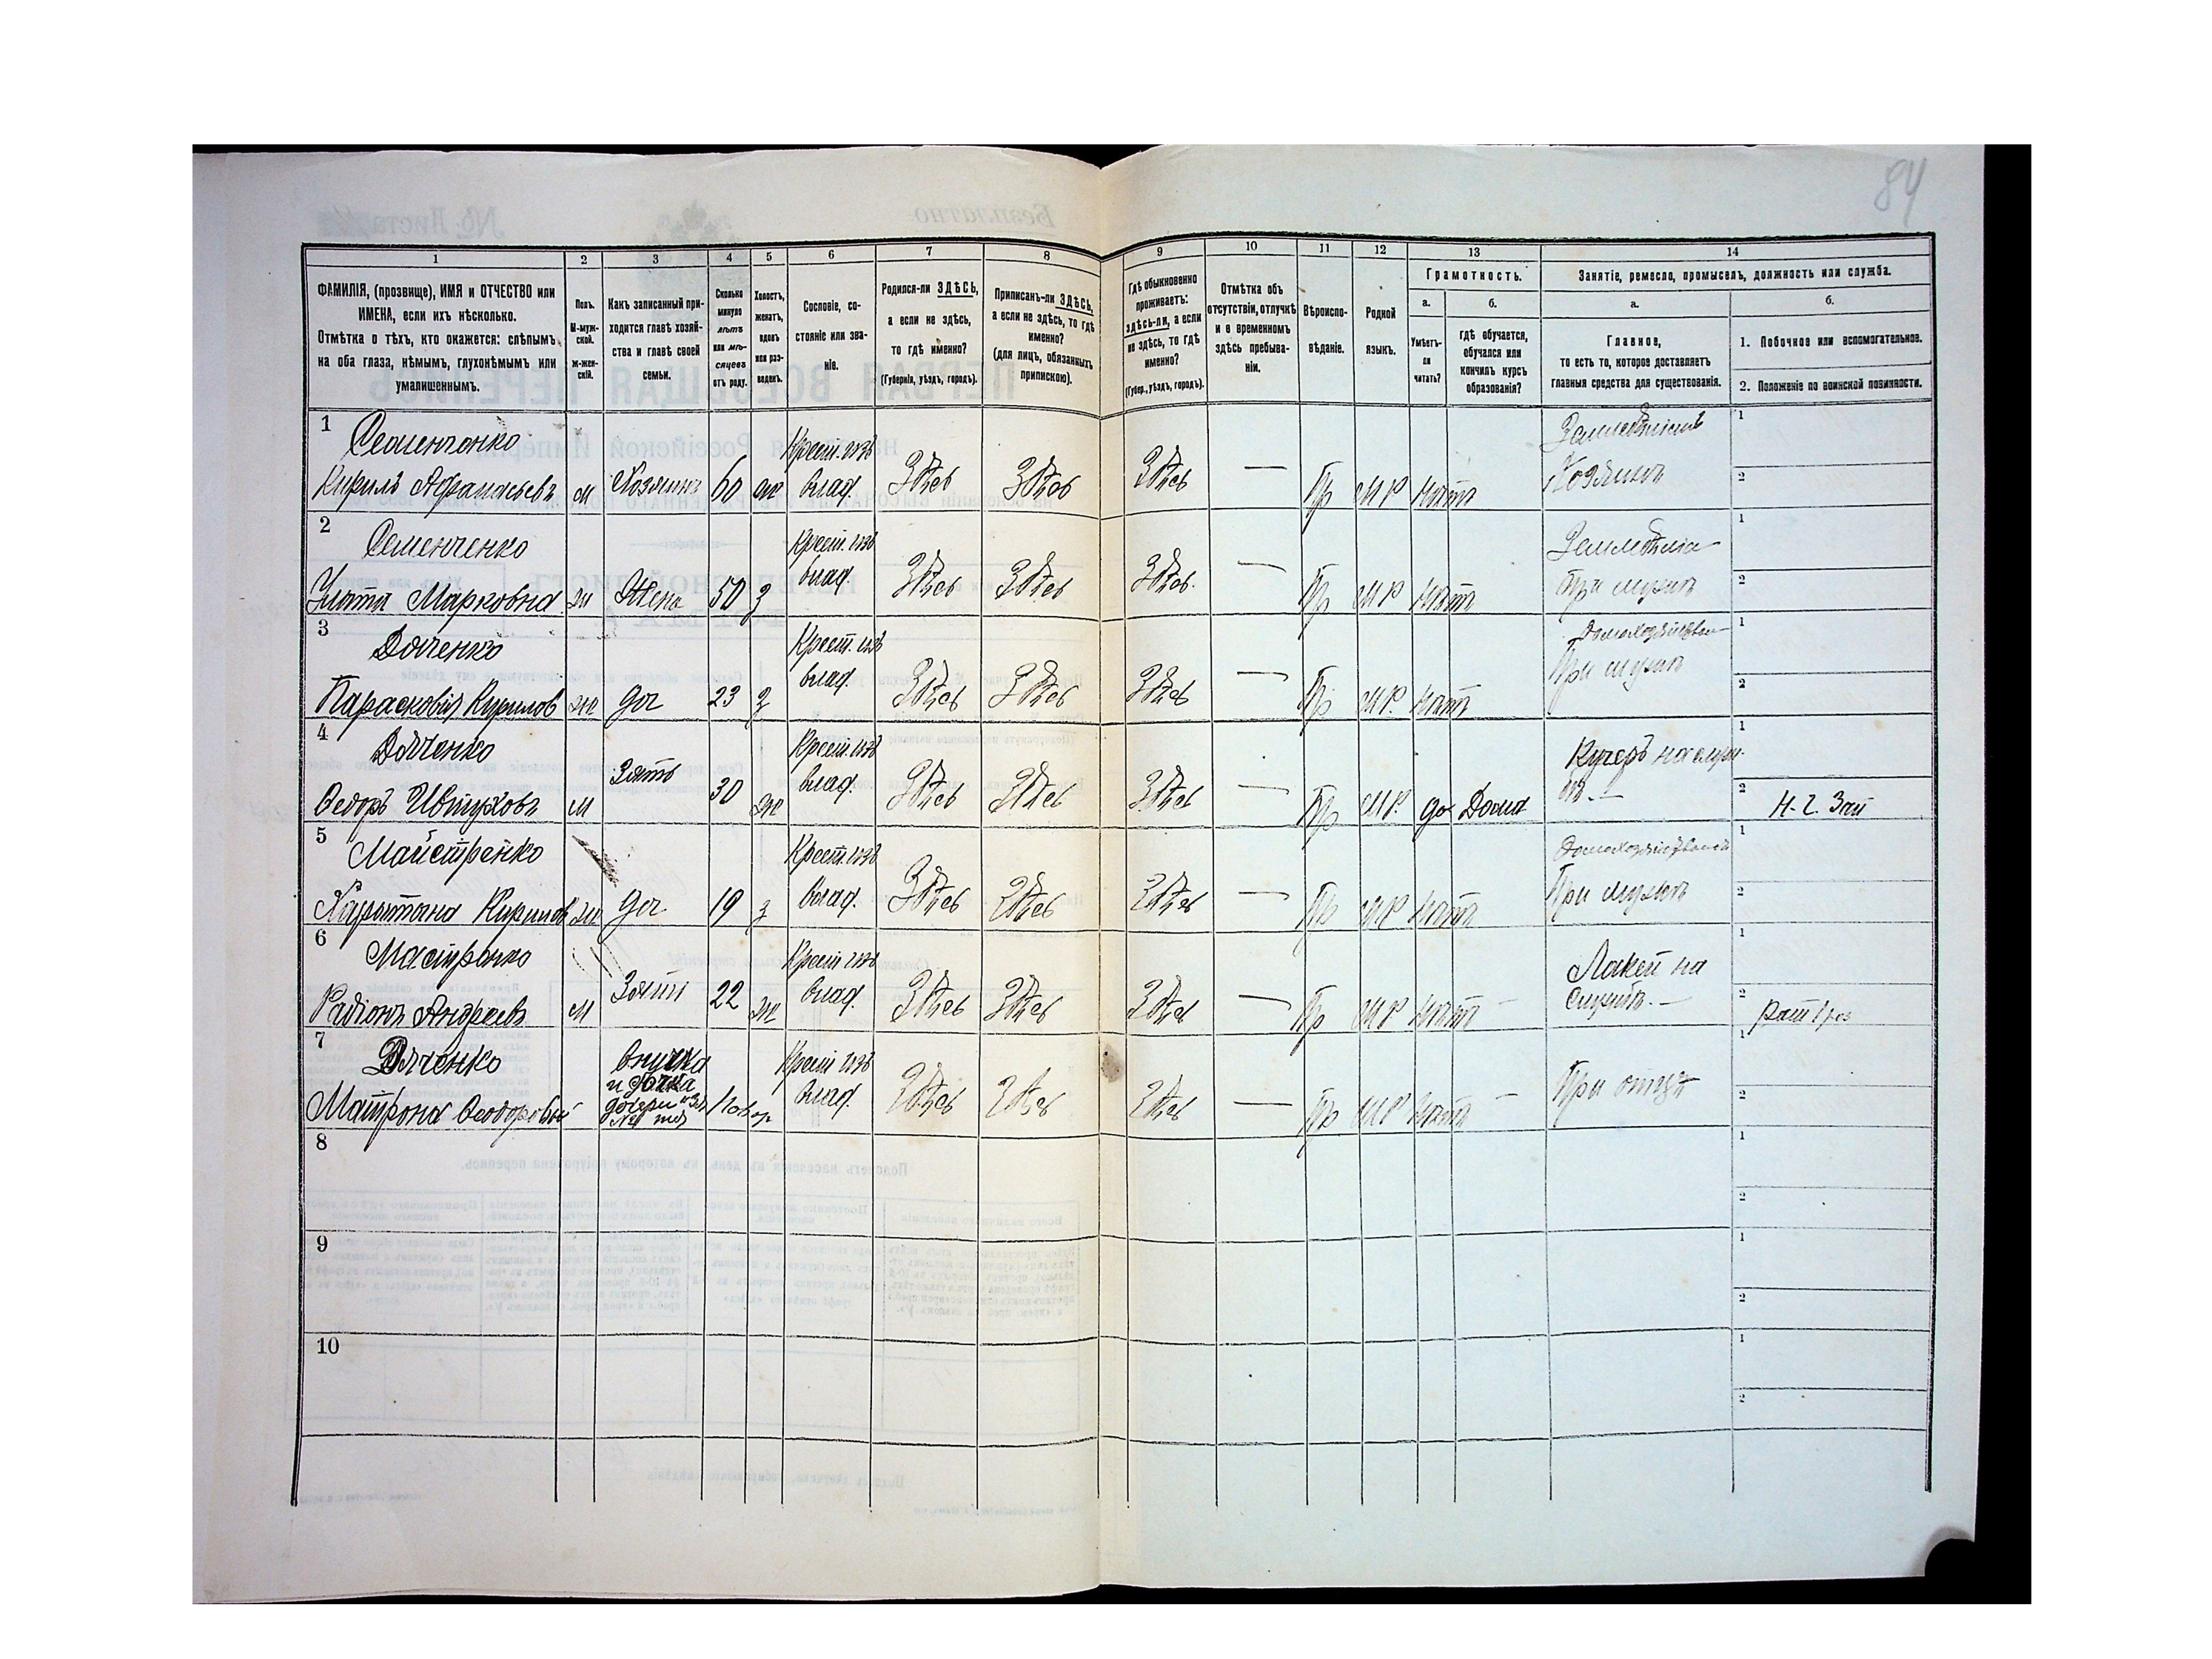 84
1 2 3 4 5 6 7 8 9 10 11 12 13 14
ФАМИЛІЯ, (прозвище), ИМЯ и ОТЧЕСТВО или ИМЕНА, если ихъ нѣсколько.
Отмѣтка о тѣхъ, кто окажется: слѣпымъ на оба глаза, нѣмымъ, глухонѣмымъ или умалишеннымъ.
Полъ.
М-мужской.
ж-женскій.
Какъ записанный приходится главѣ хозяйства и главѣ своей семьи.
Сколько минуло лѣтъ или мѣсяцевъ отъ роду.
Холостъ, женатъ, вдовъ или разведенъ.
Сословіе, состояніе или званіе.
Родился-ли ЗДѢСЬ, а если не здѣсь, то гдѣ именно?
(Губернія, уѣздъ, городъ).
Приписанъ-ли ЗДѢСЬ, а если не здѣсь, то гдѣ именно?
(для лицъ, обязанныхъ припискою).
Гдѣ обыкновенно проживаетъ: здѣсь-ли, а если не здѣсь, то гдѣ именно?
(Губер., уѣздъ, городъ).
Отмѣтка объ отсутствіи, отлучкѣ и о временномъ здѣсь пребываніи.
Вѣроисповѣданіе.
Родной языкъ.
Грамотность.
а.
Умѣетъ-ли читать?
б.
гдѣ обучается, обучался или кончилъ курсъ образованія?
Занятіе, ремесло, промыселъ, должность или служба.
а.
Главное,
то есть то, которое доставляетъ главныя средства для существованія.
б.
1. Побочное или вспомогательное.
2. Положеніе по воинской повинности.
1 Семенченко
Кирилъ Афанасьевъ м Хозяинъ 60 ж Крест. изъ влад. Здѣсь Здѣсь Здѣсь — Пр МР нѣтъ Хозяинъ
2 Семенченко
Марковна ж Жена 50 з Крест. изъ влад. Здѣсь Здѣсь Здѣсь. — Пр МР нѣтъ При мужѣ
3 Дяченко
Парасковія Кирилов ж доч 23 з Крест. изъ влад. Здѣсь Здѣсь Здѣсь — Пр МР. нѣтъ При мужѣ
4 Дяченко
Ѳедоръ м Зять 30 ж Крест. изъ влад. Здѣсь Здѣсь Здѣсь — Пр МР. да Дома Кучеръ на служ-
бѣ. —
5 Майстренко
Кирилов ж доч 19 з Крест. изъ влад. Здѣсь Здѣсь Здѣсь — Пр МР нѣтъ При мужѣ
6 Мастренко
Радіонъ Андреевъ м Зять 22 ж Крест изъ влад. Здѣсь Здѣсь Здѣсь — Пр МР нѣтъ — Лакей на
службѣ. —
7 Дяченко
Матрона Ѳеодоровна внучка и дочка дочери Крест изъ влад. Здѣсь Здѣсь Здѣсь — Пр МР нѣтъ — При отцѣ
8
9
10